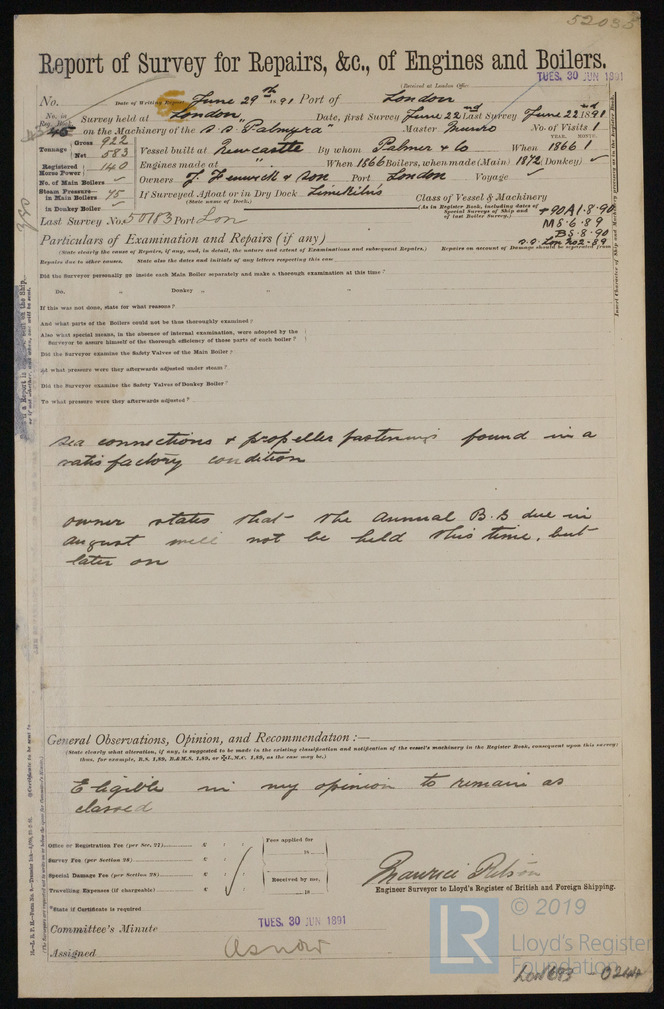 52035
Report of Survey for Repairs, &c., of Engines and Boilers.
(Received at London Office
TUES. 30 JUN 1891
No. Date of Writing Report June 29th 1891 Port of London
No. in Reg. Book Survey held at London Date, first Survey June 22nd Last Survey June 22nd 1891
45 on the Machinery of the S.S. "Palmyra" Master Munro No. of Visits 1
Tonnage Gross 922
Net 583
Vessel built at Newcastle By whom Palmer & Co When 1866 1
YEAR. MONTH.
Registered Horse Power 140 Engines made at " When 1866 Boilers, when made (Main) 1872 (Donkey) ✓
No. of Main Boilers ✓ Owners J. Fenwick & Son Port London Voyage ✓
Steam Pressure in Main Boilers 45 If Surveyed Afloat or in Dry Dock Limekilns
(State name of Dock.)
Class of Vessel & Machinery
(As in Register Book, including dates of Special Surveys of Ship and of last Boiler Survey.)
+90A1.8.90
MS.6.89
BS.8.90
S.S. Lon No2-89
in Donkey Boiler ✓
Last Survey No. 50183 Port Lon
Particulars of Examination and Repairs (if any)
(State clearly the cause of Repairs, if any, and, in detail, the nature and extent of Examinations and subsequent Repairs.) Repairs on account of Damage should be separated from
Repairs due to other causes. State also the dates and initials of any letters respecting this case
Did the Surveyor personally go inside each Main Boiler separately and make a thorough examination at this time?
Do. Donkey " " "
If this was not done, state for what reasons?
And what parts of the Boilers could not be thus thoroughly examined?
Also what special means, in the absence of internal examination, were adopted by the
Surveyor to assure himself of the thorough efficiency of those parts of each boiler?
Did the Surveyor examine the Safety Valves of the Main Boiler?
At what pressure were they afterwards adjusted under steam?
Did the Surveyor examine the Safety Valves of Donkey Boiler?
To what pressure were they afterwards adjusted?
Sea connections & propeller fastenings found in a
satisfactory condition
Owner states that the annual B.S due in
August will not be held this time, but
later on
General Observations, Opinion, and Recommendation:—
(State clearly what alteration, if any, is suggested to be made in the existing classification and notification of the vessel's machinery in the Register Book, consequent upon this survey;
thus, for example, B.S. 1,89, B.&M.S. 1,89, or ✠L.M.C. 1,89, as the case may be.)
Eligible in my opinion to remain as
classed
Office or Registration Fee (per Sec. 27) £ : :
Fees applied for
18
Survey Fee (per Section 28) £ : :
Special Damage Fee (per Section 28) £ : :
Received by me,
Travelling Expenses (if chargeable) £ : :
18
Engineer Surveyor to Lloyd's Register of British and Foreign Shipping.
*State if Certificate is required
Committee's Minute TUES. 30 JUN 1891
Assigned As now
LR © 2019
Lloyd's Register
Foundation
LON693-0244